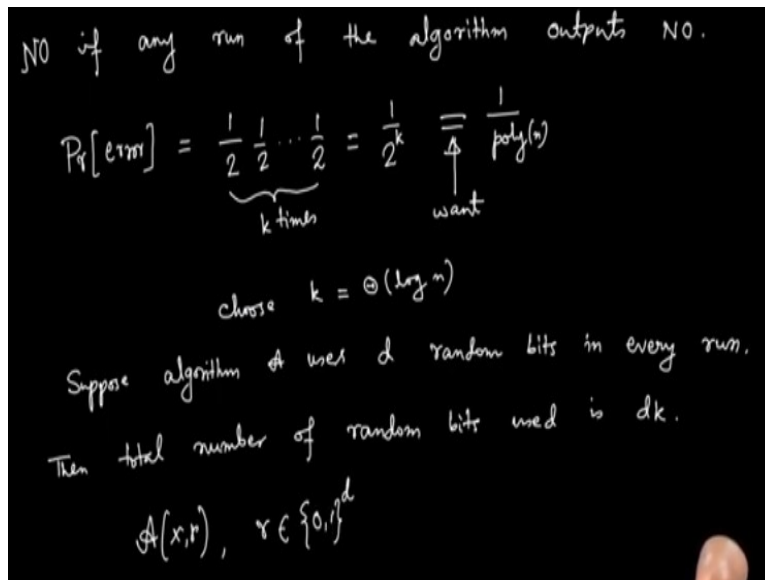 NO if any run of the algorithm outputs NO.
Pr[error] = 1/2 1/2 ... 1/2 = 1/2^k = 1/poly(n)
k times want
choose k = Θ(log n)
Suppose algorithm A uses d random bits in every run.
Then total number of random bits used is dk.
A(x,r), r ∈ {0,1}^d